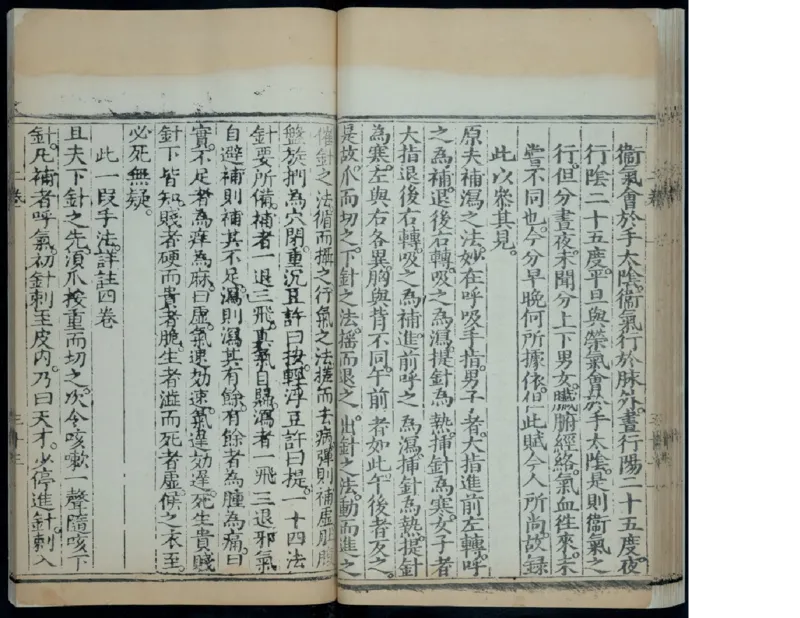 衞氣會於手太陰衞氣行於脉外晝行陽二十五度夜
行陰二十五度平旦與榮氣會於手太陰是則衞氣之
行但分晝夜未聞分上下男女臟腑經絡氣血徃來未
嘗不同也今分早晚何所據依但此賦今人所尚故録
此以叅其見
原夫補瀉之法妙在呼吸手指男子者大指進前左轉呼
之為補退後右轉吸之為瀉提針為熱揷針為寒女子者
大指退後右轉吸之為補進前呼之為瀉揷針為熱提針
為寒左與右各異胸與背不同午前者如此午後者反之
是故爪而切之下針之法揺而退之出針之法動而進之
催針之法循而攝之行氣之法搓而去病彈則補虛肚腹
盤旋捫為穴閉重沉豆許曰按輕浮豆許曰提一十四法
針要所備補者一退三飛真氣自歸瀉者一飛三退邪氣
自避補則補其不足瀉則瀉其有餘有餘者為腫為痛曰
實不足者為痒為麻曰虛氣速効速氣遲効遲死生貴賤
針下皆知賤者硬而貴者脆生者澁而死者虛候之不至
必死無疑
此一叚手法詳註四卷
且夫下針之先湏爪按重而切之次令咳嗽一聲隨咳下
針凡補者呼氣初針刺至皮内乃曰天才少停進針刺入